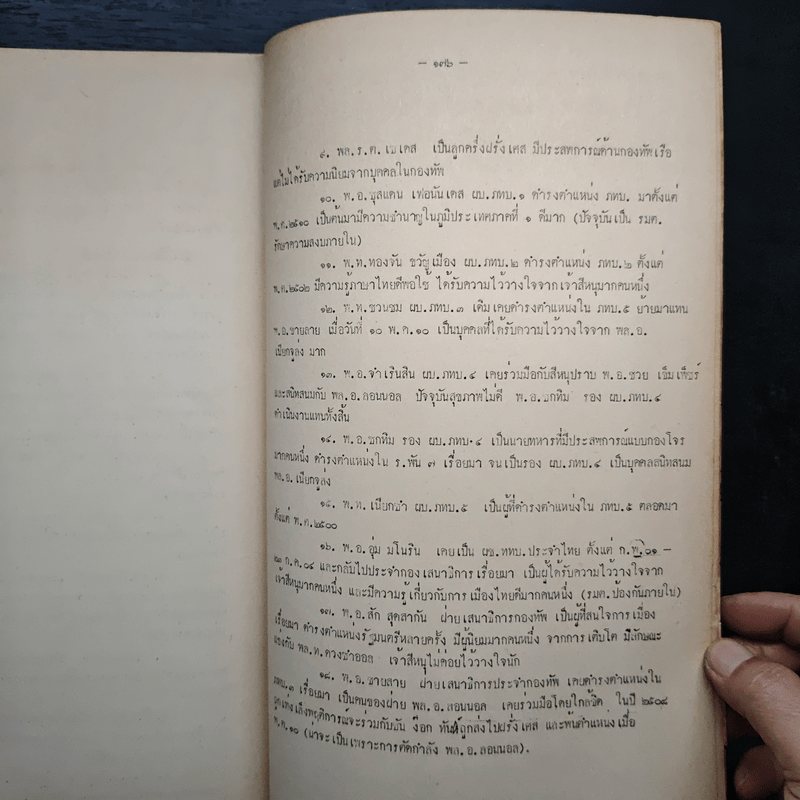 - ๑๓๖ -
๙. พล.ร.ต. เซเดส เป็นลูกครึ่งฝรั่งเศส มีประสพการณ์ด้านกองทัพเรือ
แต่ไม่ได้รับความนิยมจากบุคคลในกองทัพ
๑๐. พ.อ.ซุสแตน เฟอนันเดส ผบ.ภทบ.๑ ดำรงตำแหน่ง ภทบ. มาตั้งแต่
พ.ศ.๒๕๑๐ เป็นต้นมามีความชำนาญในภูมิประเทศภาคที่ ๑ ดีมาก (ปัจจุบันเป็น รมต.
รักษาความสงบภายใน)
๑๑. พ.ท.ทองจัน ขวัญเมือง ผบ.ภทบ.๒ ดำรงตำแหน่ง ภทบ.๒ ตั้งแต่
พ.ศ.๒๕๐๒ มีความรู้ภาษาไทยดีพอใช้ ได้รับความไว้วางใจจากเจ้าสีหนุมากคนหนึ่ง
๑๒. พ.ท.ชวนชม ผบ.ภทบ.๓ เดิมเคยดำรงตำแหน่งใน ภทบ.๕ ย้ายมาแทน
พ.อ.ชายลาย เมื่อวันที่ ๑๐ พ.ค.๑๐ เป็นบุคคลที่ได้รับความไว้วางใจจาก พล.อ.
เนียกจูล่ง มาก
๑๓. พ.อ.จำเรินสิน ผบ.ภทบ.๔ เคยร่วมมือกับสีหนุปราบ พ.อ.ชวย เข็มเพ็ชร์
และสนิทสนมกับ พล.อ.ลอนนอล ปัจจุบันสุขภาพไม่ดี พ.อ.ซกทิม รอง ผบ.ภทบ.๔
ดำเนินงานแทนทั้งสิ้น
๑๔. พ.อ.ซกทิม รอง ผบ.ภทบ.๔ เป็นนายทหารที่มีประสพการณ์แบบกองโจร
มากคนหนึ่ง ดำรงตำแหน่งใน ร.พัน ๗ เรื่อยมา จนเป็นรอง ผบ.ภทบ.๔ เป็นบุคคลสนิทสนม
พล.อ.เนียกจูล่ง
๑๕. พ.ท.เนียกซำ ผบ.ภทบ.๕ เป็นผู้ที่ดำรงตำแหน่งใน ภทบ.๕ ตลอดมา
ตั้งแต่ พ.ศ.๒๕๐๐
๑๖. พ.อ.อุ่ม มโนริน เคยเป็น ผช.ทหบ.ประจำไทย ตั้งแต่ ก.พ.๐๑ -
๒๓ ก.ค.๐๔ และกลับไปประจำกองเสนาธิการเรื่อยมา เป็นผู้ได้รับความไว้วางใจจาก
เจ้าสีหนุมากคนหนึ่ง และมีความรู้เกี่ยวกับการเมืองไทยดีมากคนหนึ่ง (รมต.ป้องกันภายใน)
๑๗. พ.อ.สัก สุตสากัน ฝ่ายเสนาธิการกองทัพ เป็นผู้ที่สนใจการเมือง
เรื่อยมา ดำรงตำแหน่งรัฐมนตรีหลายครั้ง มีผู้นิยมมากคนหนึ่ง จากการเติบโต มีลักษณะ
แข่งกับ พล.ท.ดวงซำออล เจ้าสีหนุไม่ค่อยไว้วางใจนัก
๑๘. พ.อ.ชายลาย ฝ่ายเสนาธิการประจำกองทัพ เคยดำรงตำแหน่งใน
ภทบ.๓ เรื่อยมา เป็นคนของฝ่าย พล.อ.ลอนนอล เคยร่วมมือโดยใกล้ชิด ในปี ๒๕๐๘
ถูกเพ่งเล็งพฤติการณ์จะร่วมกับซัน ง๊อก ทันห์ถูกส่งไปฝรั่งเศส และพ้นตำแหน่งเมื่อ
พ.ค.๑๐ (น่าจะเป็นเพราะการตัดกำลัง พล.อ.ลอนนอล).